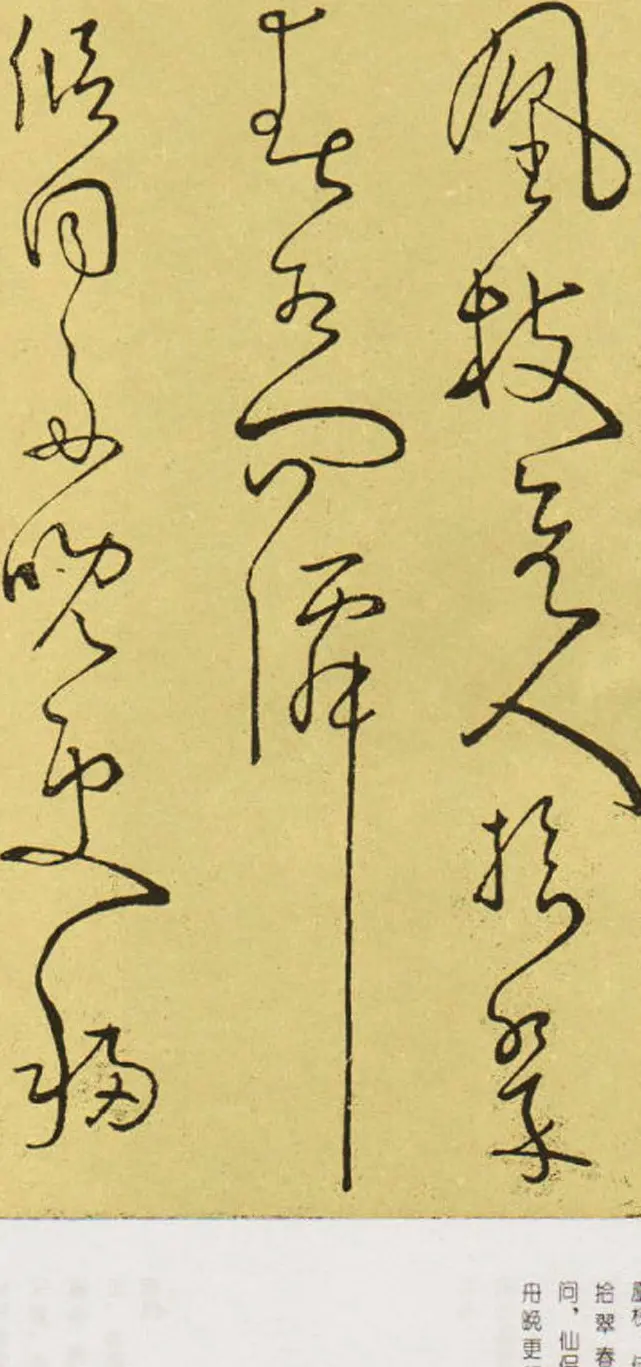 凰枝人拾翠
春相問僊
侶同舟晚更移
拾翠春
问，仙侣
舟晚更